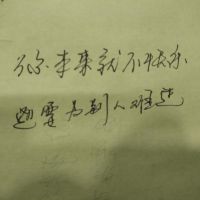 你本来就不快乐
还要为别人难过